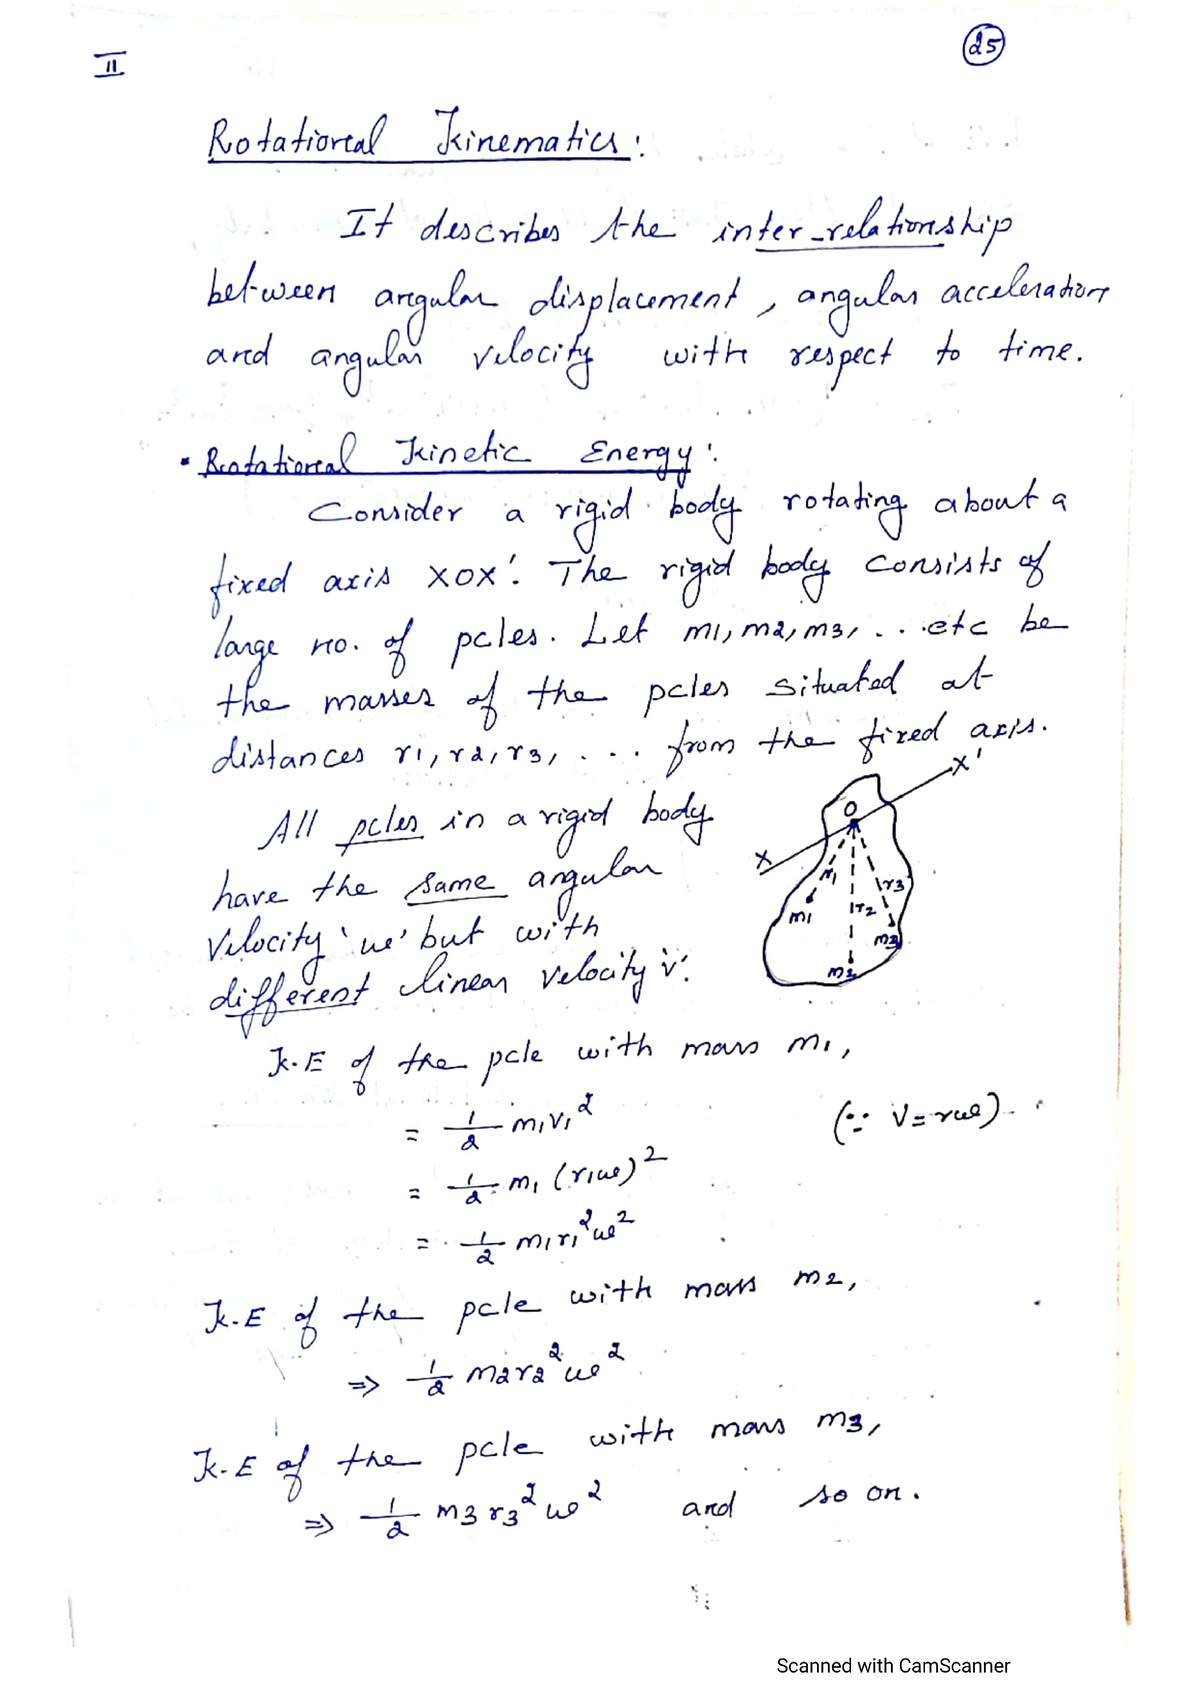 II
25
Rotational Kinematics:
It describes the inter-relationship
between angular displacement, angular acceleration
and angular velocity with respect to time.
• Rotational Kinetic Energy:
Consider a rigid body rotating about a
fixed axis XOX'. The rigid body consists of
large no. of pcles. Let m1, m2, m3, ... etc be
the masses of the pcles situated at
distances r1, r2, r3, .... from the fixed axis.
All pcles in a rigid body
have the same angular
velocity 'ω' but with
different linear velocity 'v'.
X'
O
X
r1
r3
r2
m1
m3
m2
K.E of the pcle with mass m1,
= 1/2 m1v1² (∵ v = rω)
= 1/2 m1 (r1ω)²
= 1/2 m1r1²ω²
K.E of the pcle with mass m2,
⇒ 1/2 m2r2²ω²
K.E of the pcle with mass m3,
⇒ 1/2 m3r3²ω² and so on.
Scanned with CamScanner